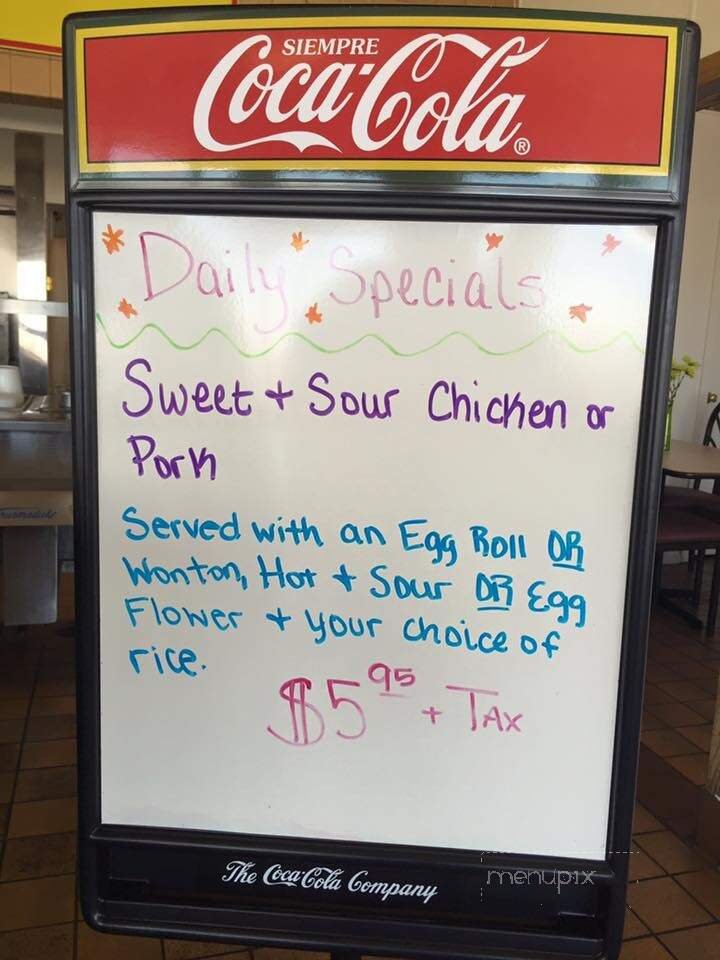 SIEMPRE
Coca-Cola®
Daily Specials
Sweet + Sour Chicken or
Pork
Served with an Egg Roll OR
Wonton, Hot + Sour OR Egg
Flower + your choice of
rice.
$5 95 + TAX
The Coca-Cola Company
menupix